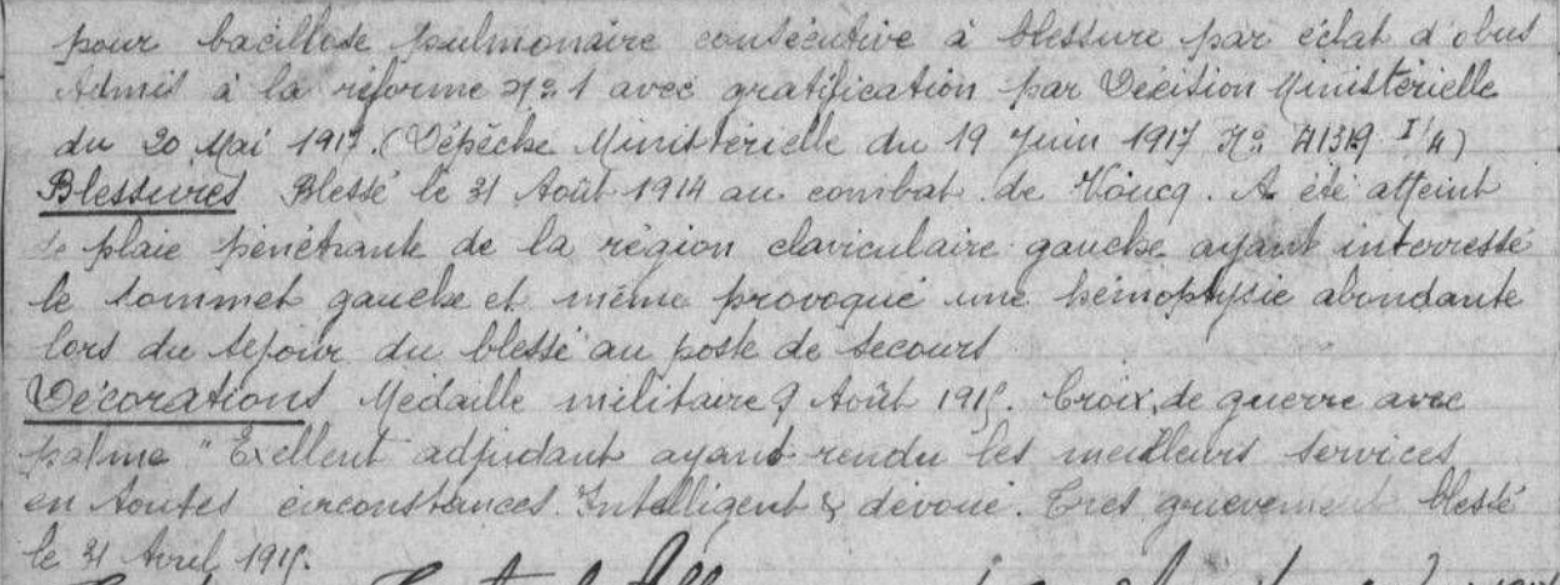 pour bacillose pulmonaire consécutive à blessure par éclat d'obus
Admis à la réforme N° 1 avec gratification par Décision Ministérielle
du 20 Mai 1917. (Dépêche Ministérielle du 19 Juin 1917 N°
Blessures Blessé le 31 Août 1914 au combat de Voncq. A été atteint
de plaie pénétrante de la région claviculaire gauche ayant interressé
le sommet gauche et même provoqué une hémophysie abondante
lors du séjour du blessé au poste de secours
Décorations Médaille militaire 9 Août 1915. Croix de guerre avec
palme "Exellent adjudant ayant rendu les meilleurs services
en toutes circonstances. Intelligent & dévoué. Très grièvement blessé
le Avril 1915.